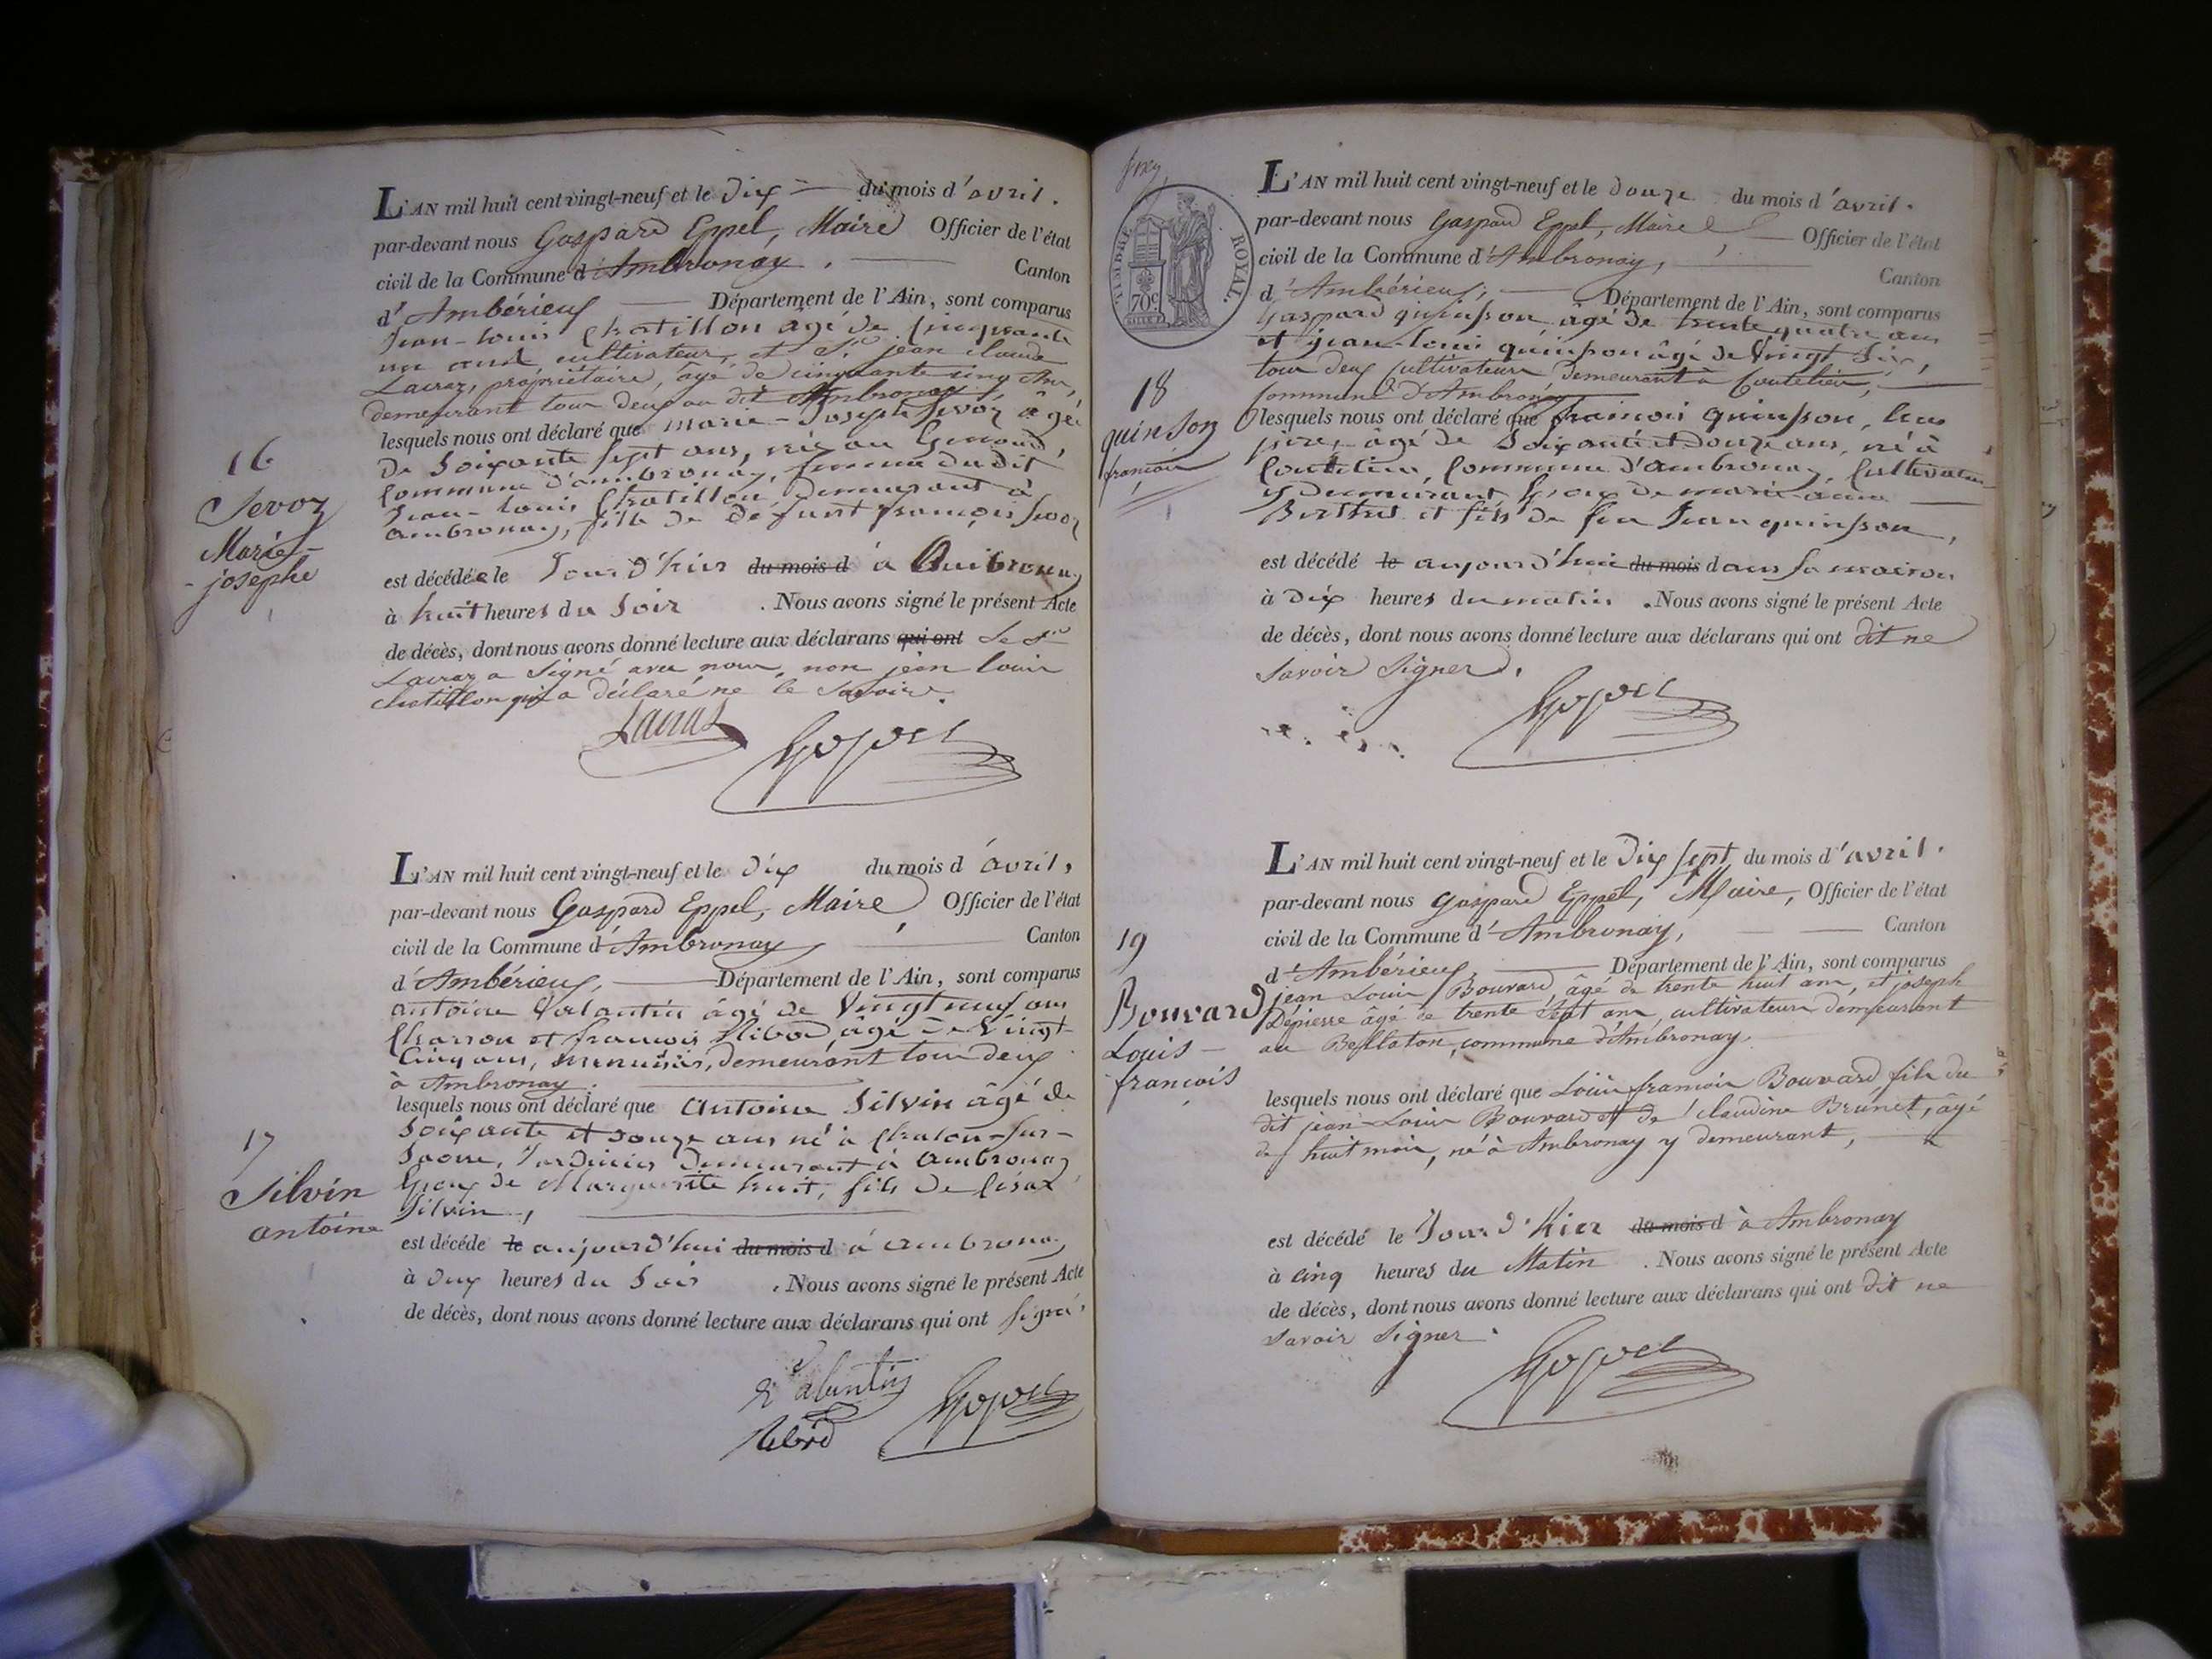 L'AN mil huit cent vingt-neuf et le Dix du mois d'avril.
par-devant nous Gaspard Eppel, Maire Officier de l'état
civil de la Commune d'Ambronay. Canton
d'Ambérieux Département de l'Ain, sont comparus
Jean-Louis Chatillon âgé de Cinquante
un ans cultivateur, et Sr. jean claude
Lauraz, propriétaire, âgé de cinquante cinq Ans,
demeurant tous deux au dit Ambronay.
lesquels nous ont déclaré que marie-Joseph Sevoz âgée
16
De Soixante Sept ans, née au Genoud,
Commune d'ambronay, femme du dit
Sevoz
Jean-Louis Chatillon Demeurant à
Marie-
ambronay, fille de Défunt françois Sevoz
-josephe
est décédée le Jour d'hier du mois d à Ambronay
à huit heures du Soir. Nous avons signé le présent Acte
de décès, dont nous avons donné lecture aux déclarans qui ont Le Sr
Lauraz a Signé avec nous, non jean Louis
chatillon qui a déclaré ne le Savoir.
L'AN mil huit cent vingt-neuf et le Dix du mois d'avril,
par-devant nous Gaspard Eppel, Maire Officier de l'état
civil de la Commune d'Ambronay, Canton
d'Ambérieux, Département de l'Ain, sont comparus
antoine Valantin âgé de Vingt neuf ans
Charron et francois Ribod, âgé de Vingt
Cinq ans, menuisier, demeurant tous deux
à Ambronay.
lesquels nous ont déclaré que antoine Silvin âgé de
17
Soixante et Douze ans né à Chalon-Sur-
Saone, Jardinier Demeurant à Ambronay
Silvin
Epoux de Marguerite huit, fils de Césas
antoine
Silvin,
est décédé le aujourd'hui du mois d à ambronay
à Deux heures du Soir. Nous avons signé le présent Acte
de décès, dont nous avons donné lecture aux déclarans qui ont Signé.
Valentin
Ribod
TIMBRE ROYAL.
70c
L'AN mil huit cent vingt-neuf et le Douze du mois d'avril.
par-devant nous Gaspard Eppel, Maire Officier de l'état
civil de la Commune d'Ambronay, Canton
d'Ambérieux, Département de l'Ain, sont comparus
Gaspard quinson âgé De trente quatre ans
et jean-louis quinson âgé de Vingt Six,
tous deux Cultivateurs Demeurant à Coutelieu,
18
Commune d'Ambronay
quinson
lesquels nous ont déclaré que francois quinson, leur
françois
père, âgé de Soixante et Douze ans, né à
Coutelieu, Commune d'ambronay, Cultivateur
y Demeurant Epoux De marie-anne
Berthet et fils De feu Jean quinson,
est décédé le aujourd'hui du mois dans sa maison
à Dix heures du matin. Nous avons signé le présent Acte
de décès, dont nous avons donné lecture aux déclarans qui ont dit ne
Savoir Signer.
L'AN mil huit cent vingt-neuf et le Dix Sept du mois d'avril.
par-devant nous Gaspard Eppel, Maire, Officier de l'état
19
civil de la Commune d'Ambronay, Canton
d'Ambérieux, Département de l'Ain, sont comparus
Bouvard
jean Louis Bouvard, âgé de trente huit ans, et joseph
Dépierre âgé de trente Sept ans, cultivateurs demeurant
Louis-
au Bellaton, commune d'Ambronay.
françois
lesquels nous ont déclaré que Louis francois Bouvard fils du
dit jean-Louis Bouvard et de claudine Brunet, âgé
de huit mois, né à Ambronay y demeurant,
est décédé le Jour d'hier du mois d à Ambronay
à cinq heures du Matin. Nous avons signé le présent Acte
de décès, dont nous avons donné lecture aux déclarans qui ont dit ne
Savoir Signer.